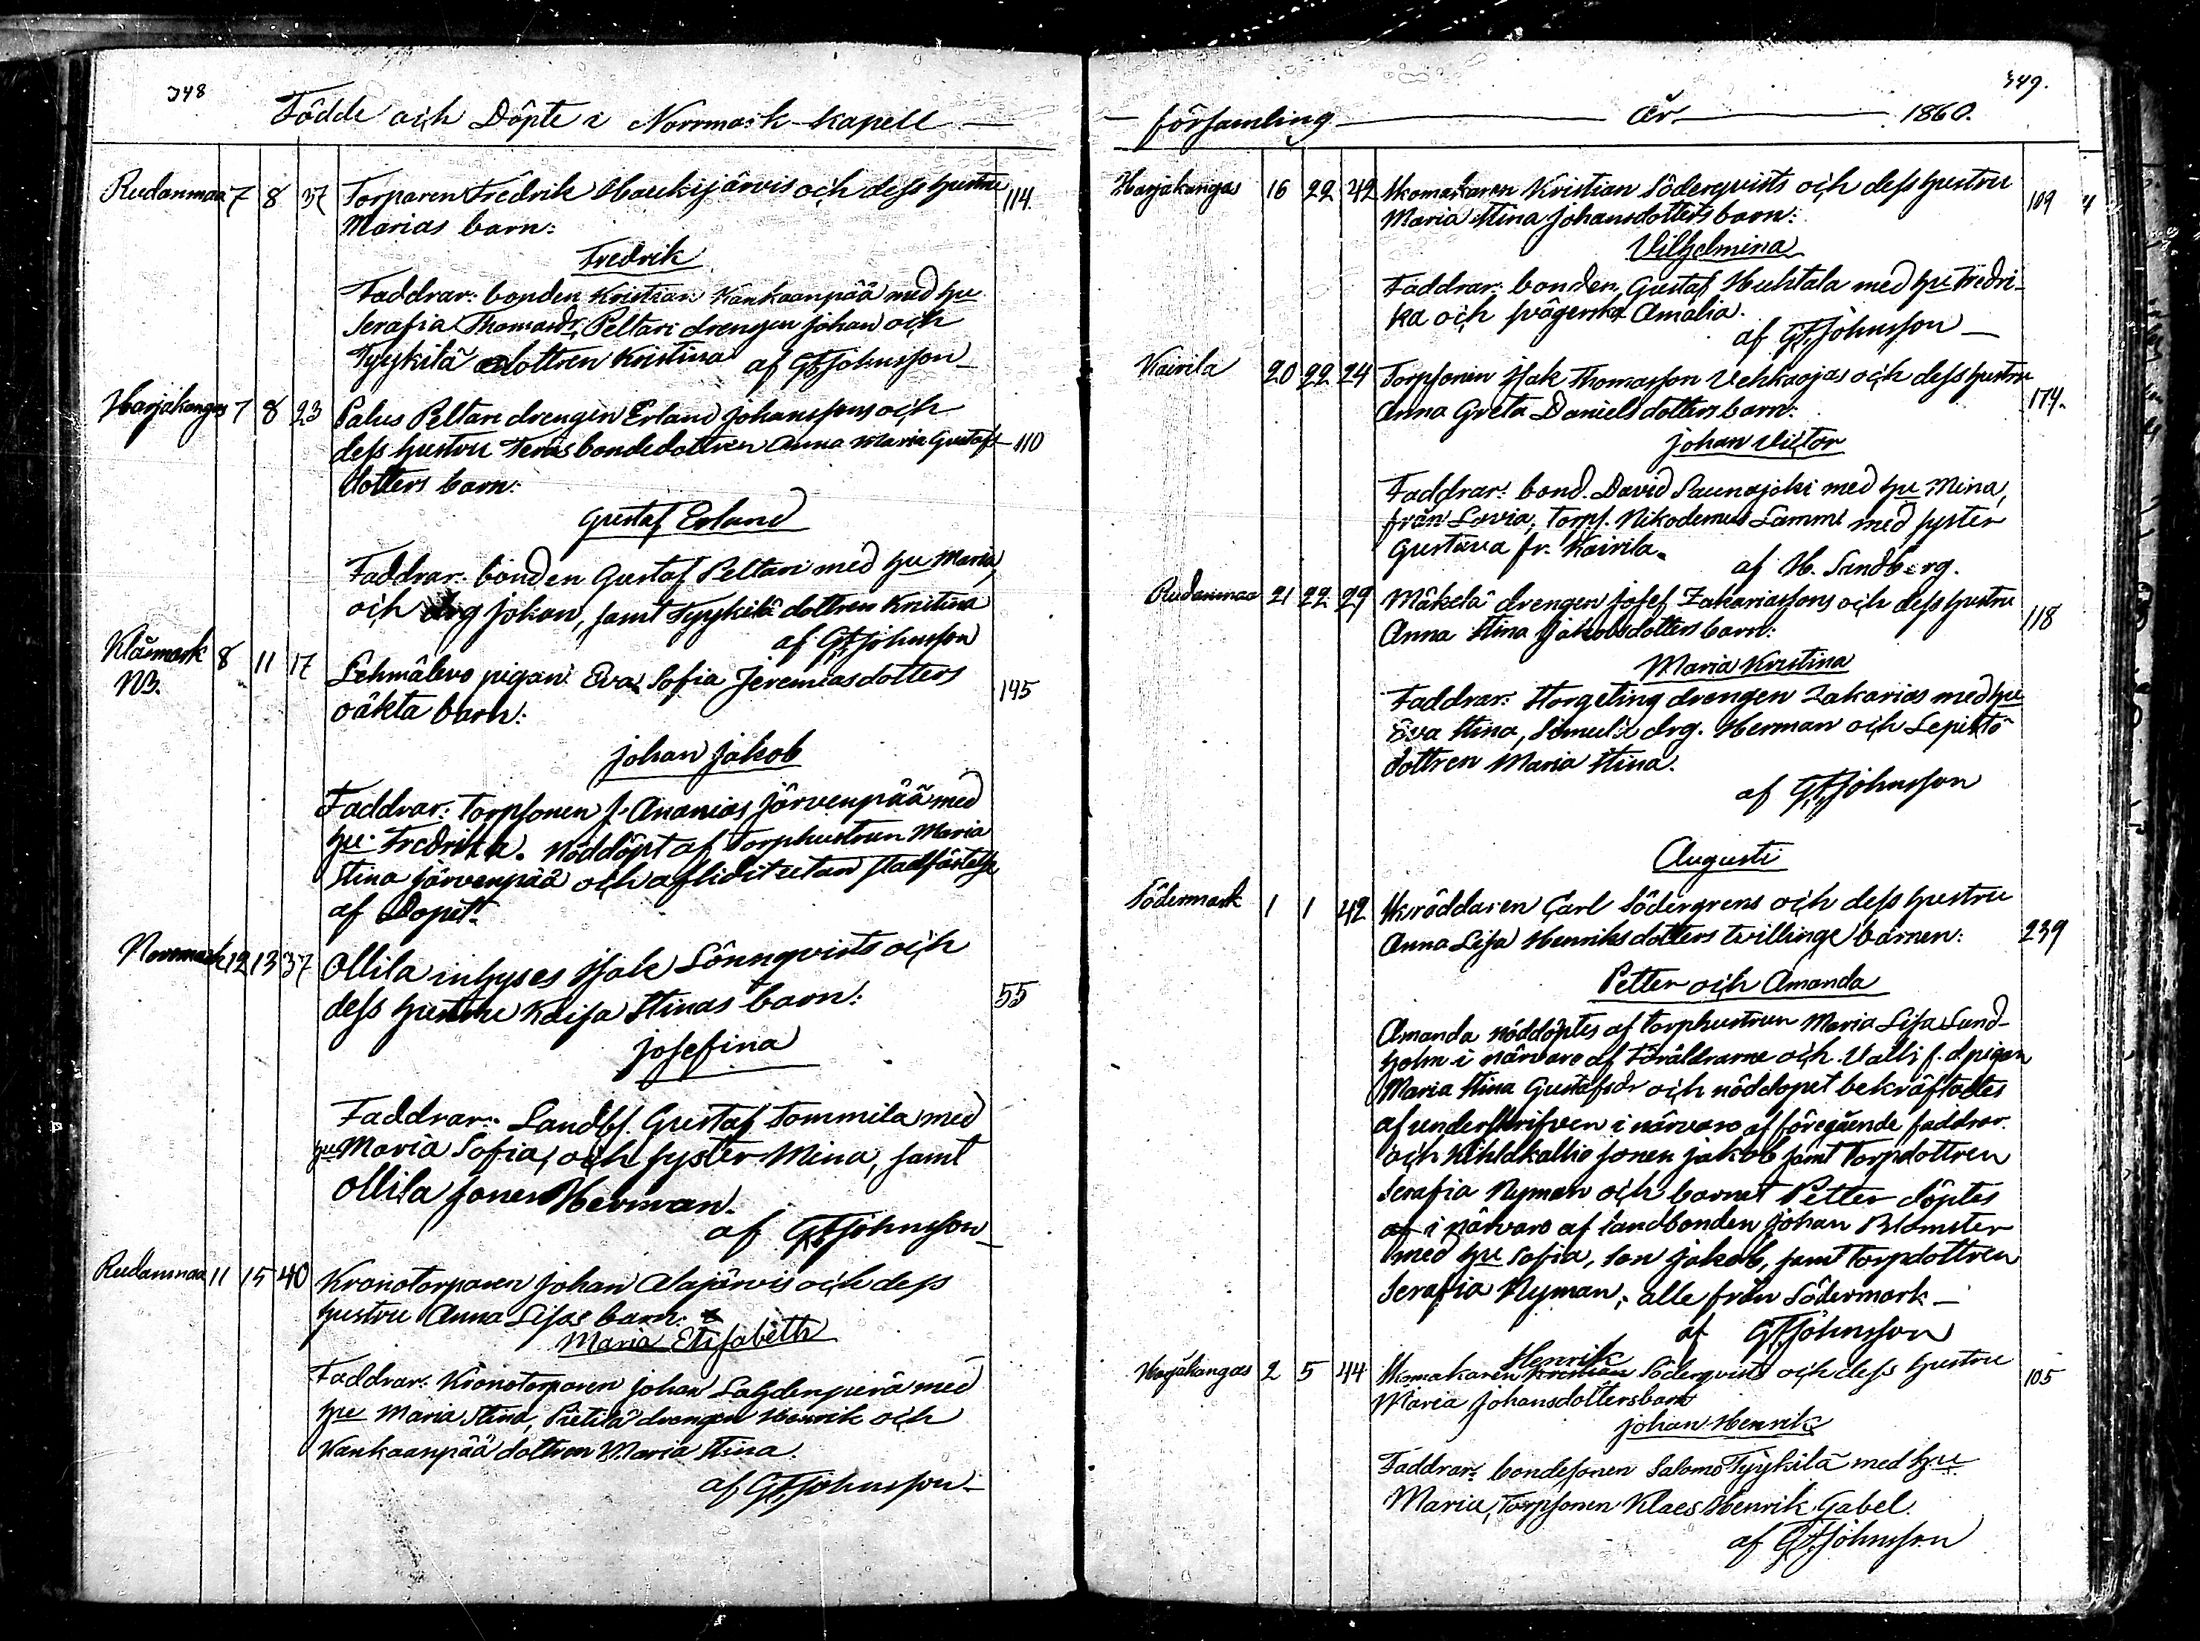 348
Födde och Döpte i Norrmark kapell
Rudanmaa 7 8 37 Torparen Fredrik Haukijärvis och dess hustru 114
Marias barn:
Fredrik
Faddrar: bonden Kristian Kankaanpää med hu
Serafia Thomasdr, Peltari drengen Johan och
Tyykilä dottren Kristina af GFJohnsson
Harjakangas 7 8 23 Palus Peltari drengen Erland Johanssons och
dess hustru bondedottren Anna Maria Gustafs 110
dotters barn:
Gustaf Erland
Faddrar: bonden Gustaf Peltari med hu Maria,
och drg Johan, samt Tyykilä dottren Kristina
af GFJohnsson
Klåsmark 8 11 17 Lehmälevo pigan Eva Sofia Jeremiasdotters 145
NB. oäkta barn:
Johan Jakob
Faddrar: Torpsonen J. Ananias Järvenpää med
hu Fredrika. Nöddöpt af Torphustrun Maria
Stina Järvenpää och aflidit utan stadfästelse
af Dopet.
Norrmark 12 13 37 Ollila inhyses Isak Lönnqvists och
dess hustru Kaisa Stinas barn: 55
Josefina
Faddrar: Landbf. Gustaf Tommila med
hu Maria Sofia, och syster Mina, samt
Ollila sonen Herman.
af GFJohnsson
Rudanmaa 11 15 40 Kronotorparen Johan Alajärvis och dess
hustru Anna Lisas barn:
Maria Elisabeth
Faddrar: Kronotorparen Johan Lahdenperä med
hu Maria Stina, Pietilä drengen Henrik och
Kankaanpää dottren Maria Stina.
af GFJohnsson
349.
församling År 1860.
Harjakangas 16 22 42 Skomakaren Kristian Söderqvists och dess hustru 109
Maria Stina Johansdotters barn:
Vilhelmina
Faddrar: bonden Gustaf Huhtala med hu Fredri-
ka och svägerska Amalia.
af GFJohnsson
Kairila 20 22 24 Torpsonen Isak Thomasson Vehkaojas och dess hustru
Anna Greta Danielsdotters barn: 174.
Johan Victor
Faddrar: bond. David Saunajoki med hu Mina,
från Lavia, Torps. Nikodemus Lammi med syster
Gustava fr. Kairila.
af H. Sandberg.
Rudanmaa 21 22 29 Mäkelä drengen Josef Zakariassons och dess hustru
Anna Stina Jakobsdotters barn: 118
Maria Kristina
Faddrar: Storgeting drengen Zakarias med hu
Eva Stina, drg. Herman och Lepistö
dottren Maria Stina.
af GFJohnsson
Augusti
Södermark 1 1 42 Skräddaren Carl Södergrens och dess hustru
Anna Lisa Henriksdotters tvillinge barnen: 239
Petter och Amanda
Amanda nöddöptes af torphustrun Maria Lisa Lund-
holm i närvaro af Föräldrarne och Valli f. d. pigan
Maria Stina Gustafsdr och nöddopet bekräftades
af underskrifven i närvaro af föregående faddrar.
och sonen Jakob samt Torpdottren
Serafia Nyman och barnet Petter döptes
af i närvaro af landbonden Johan Blomster
med hu Sofia, son Jakob, samt Torpdottren
Serafia Nyman; alle från Södermark
af GFJohnsson
Henrik
Harjakangas 2 5 44 Skomakaren Kristian Söderqvists och dess hustru 105
Maria Johansdotters barn
Johan Henrik
Faddrar: bondesonen Salomo Tyykilä med hu
Maria, Torpsonen Klaes Henrik Gabel.
af GFJohnsson